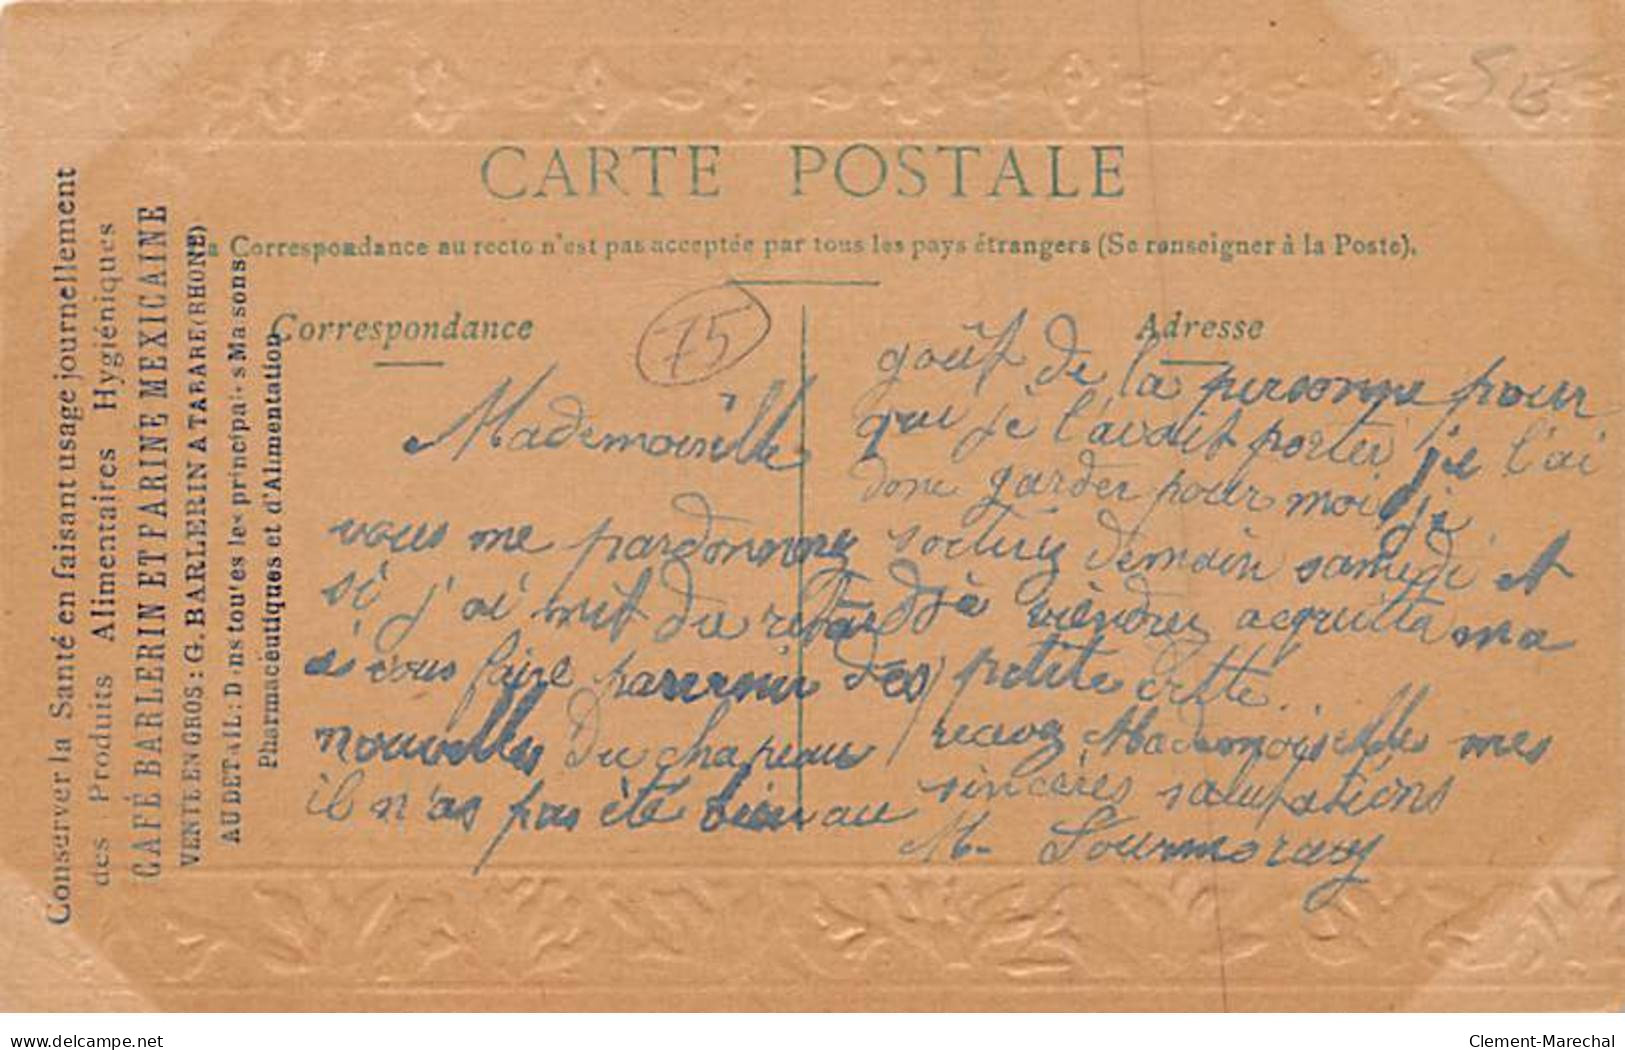 CARTE POSTALE
a Correspondance au recto n'est pas acceptée par tous les pays étrangers (Se renseigner à la Poste).
Correspondance
Adresse
75
Conserver la Santé en faisant usage journellement
des Produits Alimentaires Hygiéniques
CAFÉ BARLERIN ET FARINE MEXICAINE
VENTE EN GROS: G. BARLERIN A TARARE (RHONE)
AU DETAIL: Dans toutes les principales Maisons
Pharmaceutiques et d'Alimentation
Mademoiselle
vous me pardonnerez
si j'ai mit du retard
à vous faire parvenir des
nouvelles du chapeau
il n'as pas été bien au
goût de la personne pour
qui je l'avait porter je l'ai
donc garder pour moi je
sortirez demain samedi et
viendrez acquitter ma
petite dette
recevez Mademoiselle mes
sincères salutations
M.
delcampe.net
Clement-Marechal